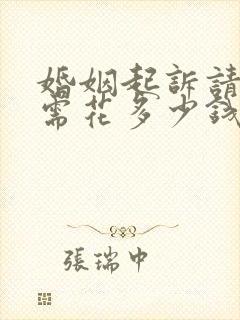 婚姻起訴請
需花多少錢
張瑞中